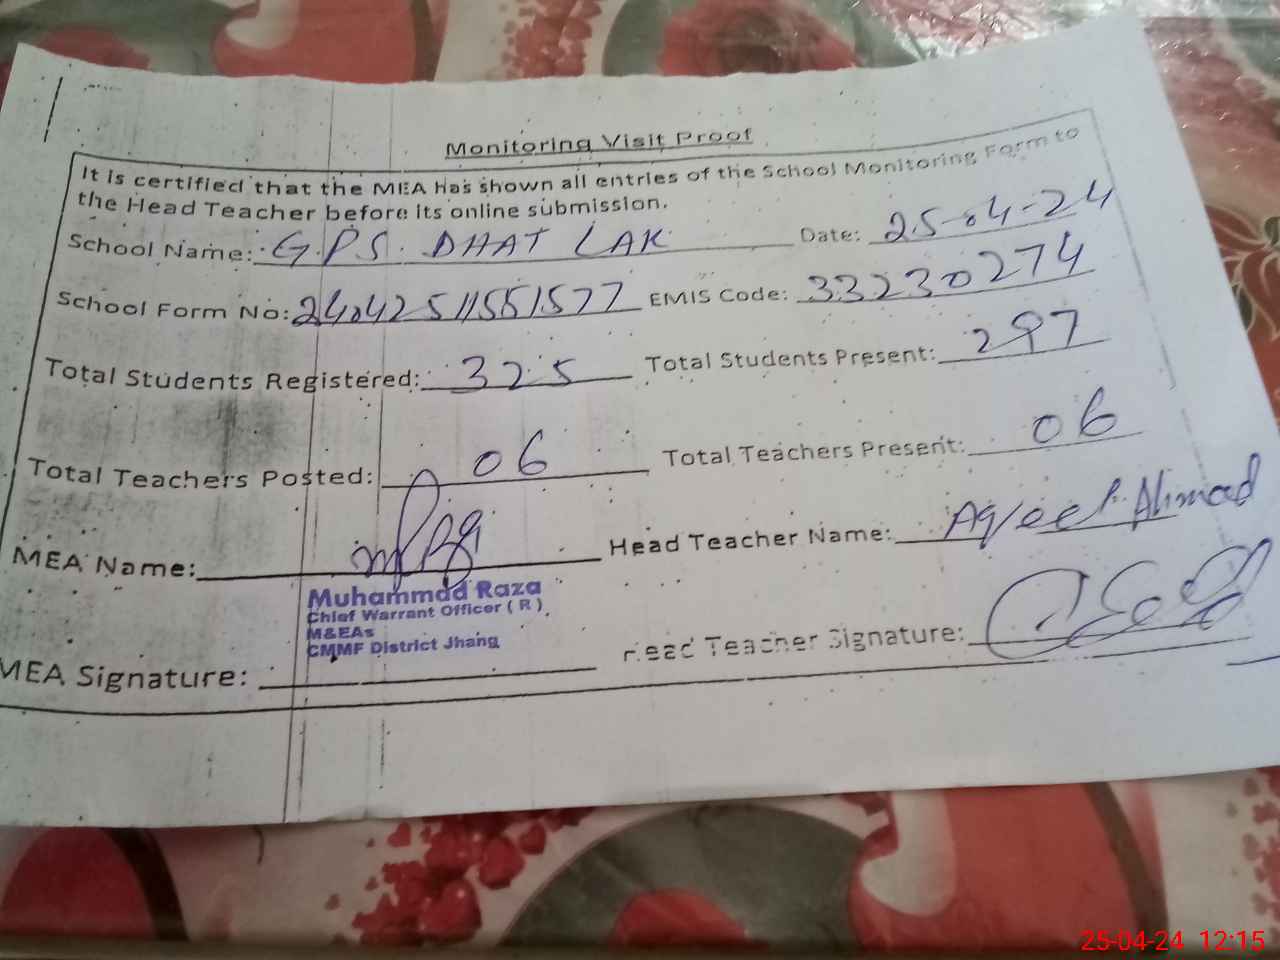 Monitoring Visit Proof
It is certified that the MEA has shown all entries of the School Monitoring Form to
the Head Teacher before its online submission.
School Name: G.P.S. DHAT LAK Date: 25-04-24
School Form No: EMIS Code: 33230274
Total Students Registered: 325 Total Students Present: 297
Total Teachers Posted: 06 Total Teachers Present: 06
MEA Name: Head Teacher Name: Aqeel Ahmad
Muhammad Raza
Chief Warrant Officer ( R )
M&EAs
CMMF District Jhang
MEA Signature: Head Teacher Signature:
25-04-24 12:15